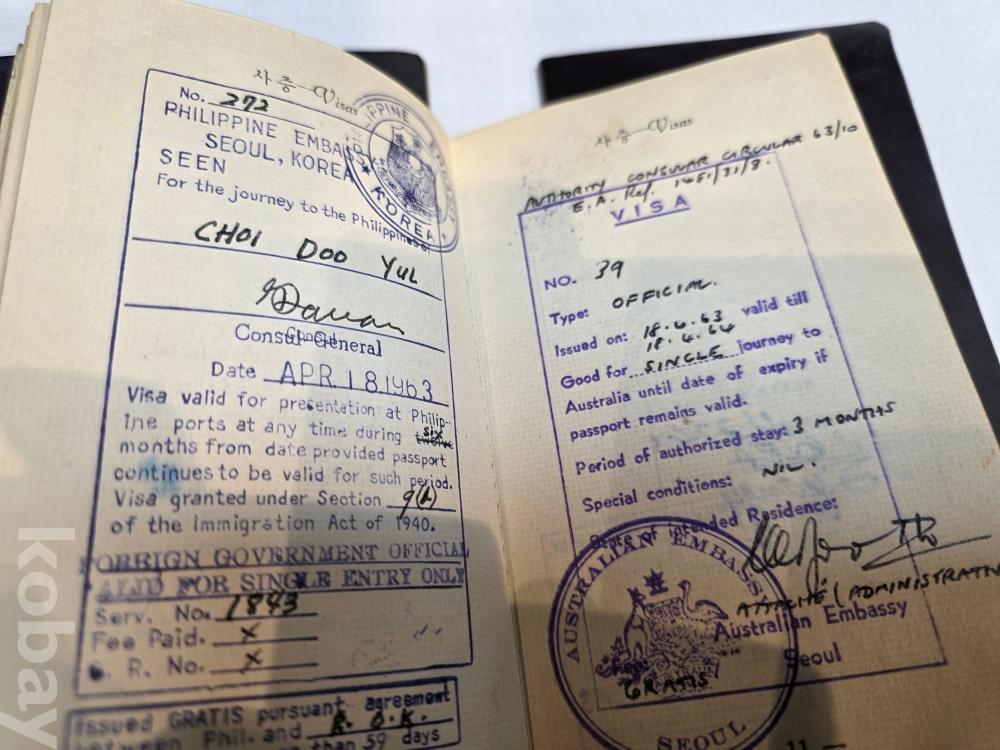 사증-Visas
No. 272
PHILIPPINE EMBASSY
SEOUL, KOREA
SEEN
For the journey to the Philippines of
CHOI DOO YUL
Consul General
Date APR 18 1963
Visa valid for presentation at Philip-
ine ports at any time during twelve six
months from date provided passport
continues to be valid for such period.
Visa granted under Section 9(h)
of the Immigration Act of 1940.
FOREIGN GOVERNMENT OFFICIAL
VALID FOR SINGLE ENTRY ONLY
Serv. No. 1843
Fee Paid. x
R. No. x
Issued GRATIS pursuant agreement
between Phil. and R. O. K.
than 59 days
KOREA
사증-Visas
AUTHORITY CONSULAR CIRCULAR 63/10
E.A. Ref. 1451/31/8.
VISA
NO. 39
Type: OFFICIAL.
Issued on: 18.4.63 valid till
18.4.64
Good for SINGLE journey to
Australia until date of expiry if
passport remains valid.
Period of authorized stay: 3 MONTHS
Special conditions: NIL.
State of intended Residence:
AUSTRALIAN EMBASSY
ATTACHÉ (ADMINISTRATIVE
Australian Embassy
Seoul
Fee:
GRATIS
SEOUL
kobay